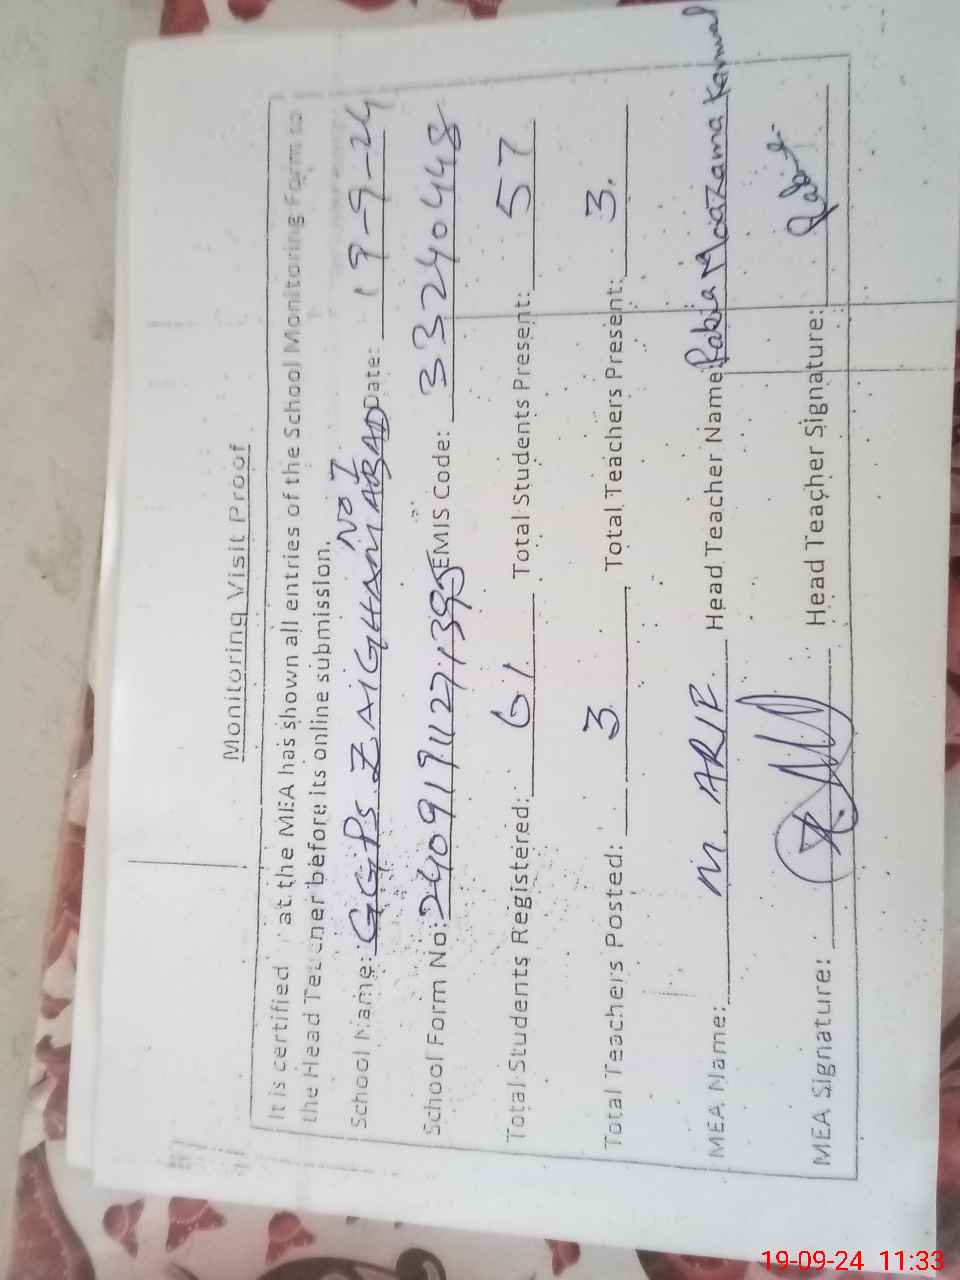 Monitoring Visit Proof
It is certified at the MEA has shown all entries of the School Monitoring Form to
the Head Teacher before its online submission.
School Name: GGPS ZAIGHAMABAD NO 1 Date: 19-9-24
School Form No: 24091911271395 EMIS Code: 33240448
Total Students Registered: 61 Total Students Present: 57
Total Teachers Posted: 3 Total Teachers Present: 3.
MEA Name: M. ARIF Head Teacher Name: Rabia Moazama Kanwal
MEA Signature: Head Teacher Signature:
19-09-24 11:33